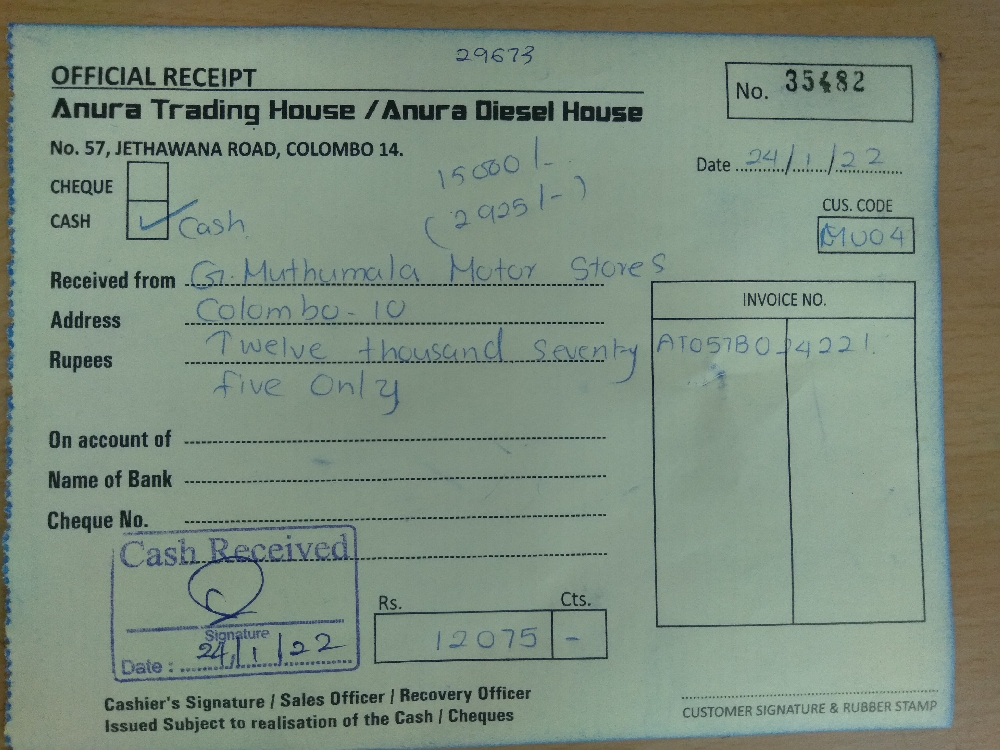 29673
OFFICIAL RECEIPT
No. 35482
Anura Trading House / Anura Diesel House
No. 57, JETHAWANA ROAD, COLOMBO 14.
15000/-
Date 24/1/22
CHEQUE
(2925/-)
CASH Cash
CUS. CODE
MU04
Received from G. Muthumala Motor Stores
Address Colombo-10
Rupees Twelve thousand seventy
five Only
INVOICE NO.
AT057B014221
On account of
Name of Bank
Cheque No.
Cash Received
Signature
Date : 24/1/22
Rs. Cts.
12075 -
Cashier's Signature / Sales Officer / Recovery Officer
Issued Subject to realisation of the Cash / Cheques
CUSTOMER SIGNATURE & RUBBER STAMP